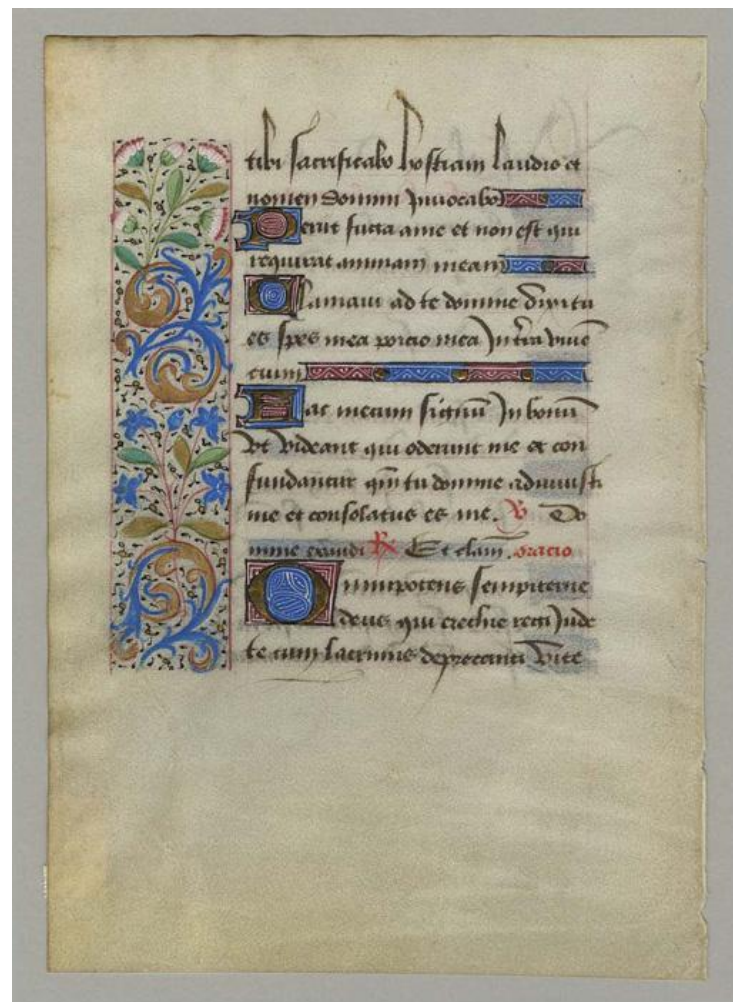 tibi sacrificabo hostiam laudis et
nomen domini Invocabo
Periit fuga a me et non est qui
requirat animam meam
Clamavi ad te domine dixi tu
es spes mea porcio mea In tr̃a viuẽ
cium
Fac mecum signũ In bonũ
vt videant qui oderunt me et con
fundantur qm̃ tu domine adiuuisti
me et consolatus es me. ℣ Do
mine exaudi ℟ Et clam̃. oracio
Omnipotens sempiterne
deus qui ezechie regi Jude
te cum lacrimis deprecanti vite